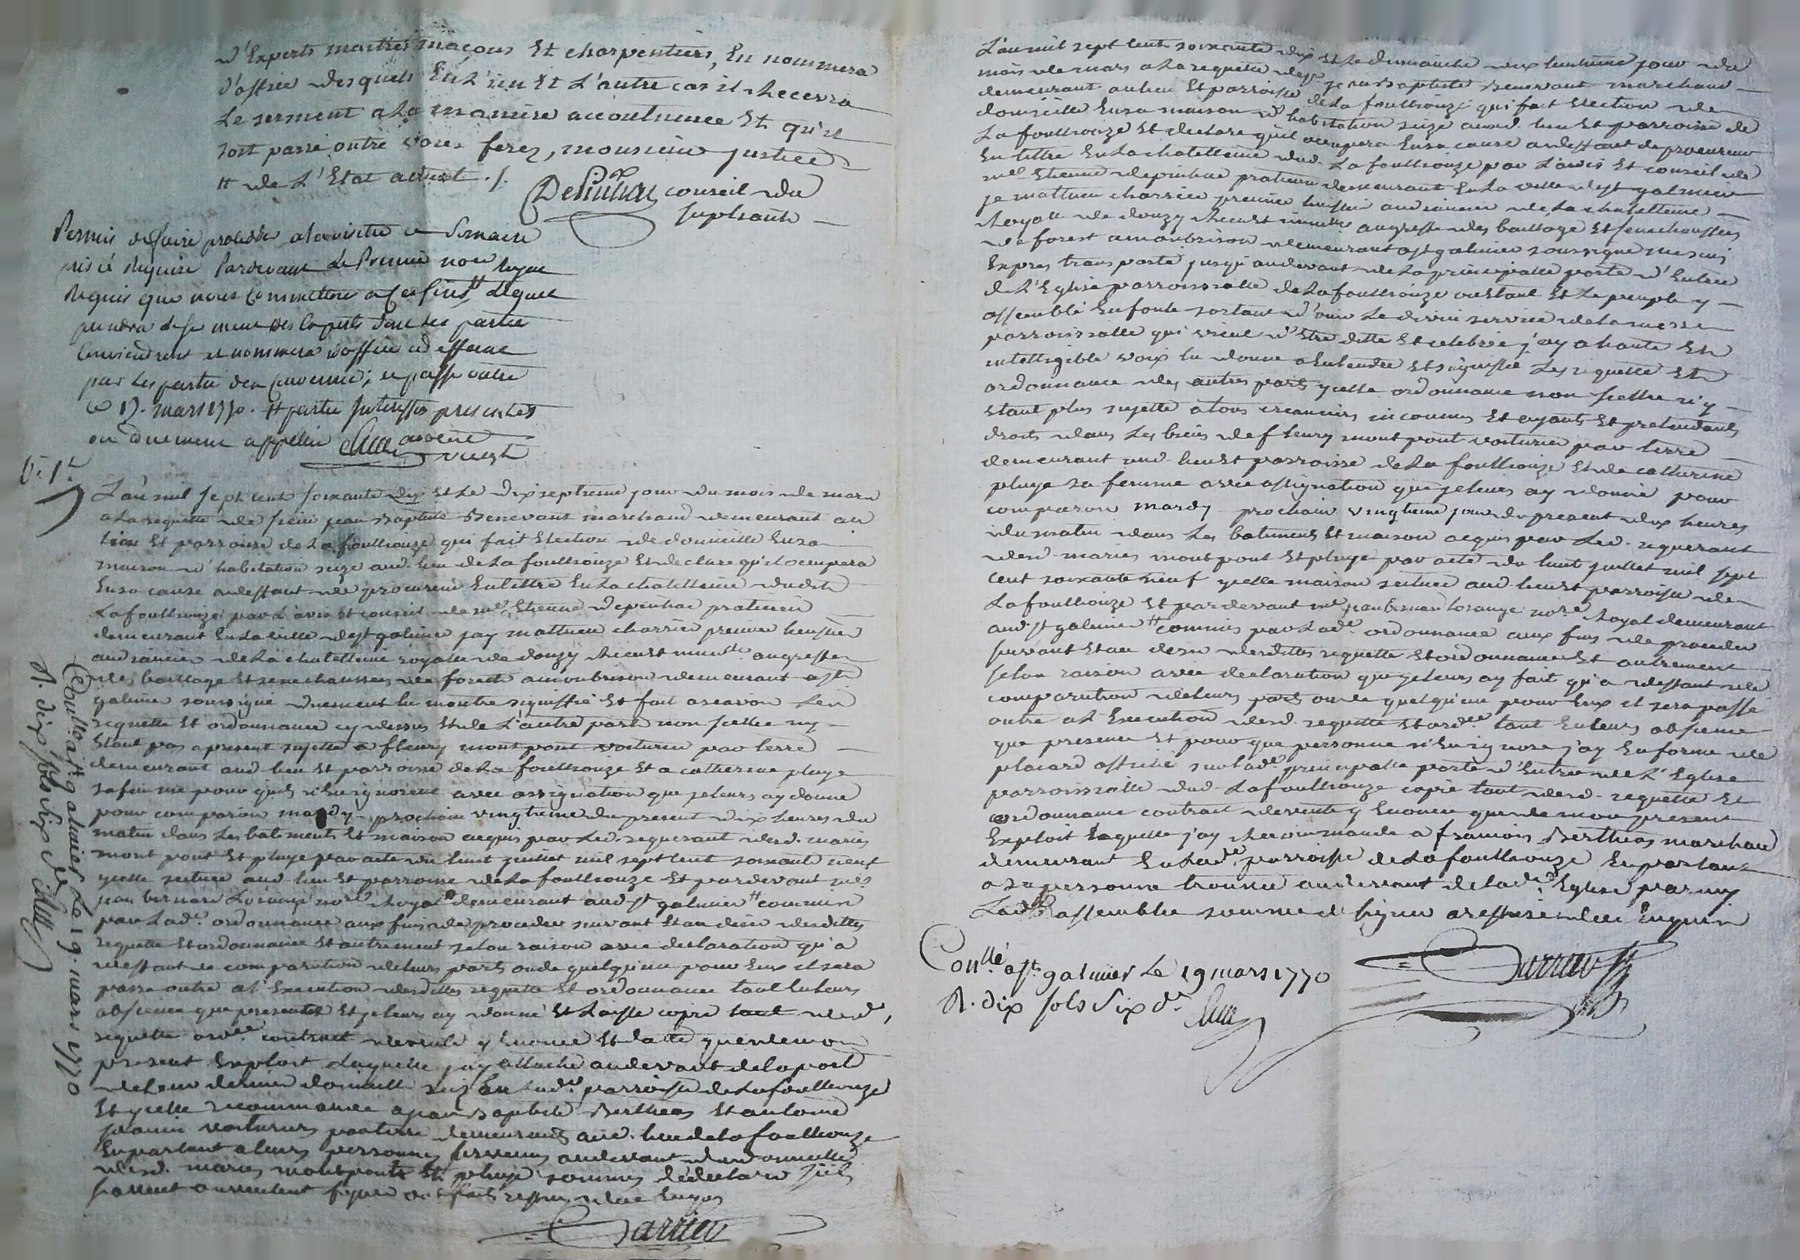 d'Experts maitres maçons Et charpentiers, En nommera
d'office desquels En L'un Et L'autre cas il Recevra
Le serment a La maniere accoutumée Et qu'il
soit passé outre vous ferez, monsieur justice
# de L'Etat actuel ./.
Depinhac conseil du
supliant
Permis de faire proceder a la visitte
requise Pardevant Le Premier no.re Royal
Requis que nous Commettons a Cet Effet, Lequel
prendra des Experts dont Les parties
Conviendront et nommera d'office
par Les parties d'en Convenir; et passé outre
Ce 17. mars 1770. # parties Interessées presentes
ou duement appellées
L'an mil sept cent soixante dix Et Le dix septieme jour du mois de mars
a La requette de sieur jean Baptiste Benevant marchand demeurant au
lieu Et parroisse de La fouillouze qui fait Election de domicille En sa
maison d'habitation size aud. lieu de La fouillouze Et declare qu'il occupera
En sa cause a deffaut de procureur En tittre En La chatellenie dudit
La fouillouze par L'avis Et conseil de me. Etienne depinhac praticien
demeurant En La ville de st galmier jay mathieu charrier premier huissier
audiancier de La chatellenie royalle de donzy
des bailliage Et senechaussée de forest a montbrison demeurant a st
galmier soussigné duement montré signiffié Et fait a scavoir Les
requette Et ordonnance cy dessus Et de L'autre part non scellée n'y
Etant pas a present sujette a fleury montpont voiturier par terre
demeurant aud. lieu Et parroisse de La fouillouze Et a catherine pluye
sa femme pour qu'ils n'En ignorent avec assignation que je leurs ay donné
pour comparoir mardy prochain vingtieme du present dix heures du
matin dans Les batiments Et maison acquis par Led. requerant desd. mariés
mont pont Et pluye par acte du huit juillet mil sept cent soixante neuf
ycelle scituée aud. lieu Et parroisse de La fouillouze Et par devant me.
jean bernard Lorange no.re Royal demeurant aud. st galmier # commis
par Lad. ordonnance aux fins de proceder suivant Et au desir desdittes
requette Et ordonnance Et autrement selon raison avec declaration qu'a
deffaut de comparution de leurs parts ou de quelqu'un pour Eux il sera
passé outre a l'Execution desdittes requette Et ordonnance tant En leurs
absence que presence Et je leurs ay donné Et Laissé copie tant desd.
requette ord.ce contract de vente y Enoncé Et datté que de mon
present Exploit Laquelle j'ay attaché au devant de la porte
de leur dernier domicille size En Lad. parroisse de La fouillouze
Et ycelle recommandée a jean Baptiste Bertheas Et antoine
voituriers par terre demeurants aud. lieu de La fouillouze
En parlant a leurs personnes trouvées au devant dud. domicille
desd. mariés montpont Et pluye sommés
Charrier
Con.llé a st galmier Le 19. mars 1770
R. dix sols six d.rs
L'an mil sept cent soixante dix Et Le dimanche dix huitieme jour du
mois de mars a La requette de sr jean Baptiste Benevant marchand
demeurant au lieu Et parroisse de La fouillouze qui fait Election de
domicille En sa maison d'habitation size aud. lieu Et parroisse de
La fouillouze Et declare qu'il occupera En sa cause a deffaut de procureur
En tittre En La chatellenie dud. La fouillouze par L'avis Et conseil de
me. Etienne depinhac praticien demeurant En La ville de st galmier
je mathieu charrier premier huissier audiancier de La chatellenie
Royalle de donzy au greffe des bailliage Et senechaussée
de forest a montbrison demeurant a st galmier soussigné me suis
Expres transporté jusqu'au devant de la principalle porte d'Entrée
de L'Eglise parroissialle de La fouillouze ou Etant Et Le peuple y
assemblé En foule sortant d'ouir Le divin service de la messe
parroissialle qui vient d'Etre ditte Et celebrée j'ay a haute Et
intelligible voix lu donné a Entendre Et signiffié Les requette Et
ordonnance des autres parts ycelle ordonnance non scellée n'y
Etant plus sujette a tous creanciers inconnus Et ayants Et pretendants
droits dans Les biens de fleury mont pont voiturier par terre
demeurant aud. lieu Et parroisse de La fouillouze Et de catherine
pluye sa femme avec assignation que je leurs ay donné pour
comparoir mardy prochain vingtieme jour du present dix heures
du matin dans Les batiments Et maison acquis par Led. requerant
desd. mariés mont pont Et pluye par acte du huit juillet mil sept
cent soixante neuf ycelle maison scituée aud. lieu Et parroisse de
La fouillouze Et par devant me. jean bernard Lorange no.re Royal demeurant
aud. st galmier # commis par Lad. ordonnance aux fins de proceder
suivant Et au desir desdittes requette Et ordonnance Et autrement
selon raison avec declaration que je leurs ay fait qu'a deffaut de
comparution de leurs parts ou de quelqu'un pour Eux il sera passé
outre a L'Execution desd. requette Et ord.ce tant En leurs absence
que presence Et pour que personne n'En ignore j'ay En forme de
placard affiché sur Lad. principalle porte d'Entrée de L'Eglise
parroissialle dud. La fouillouze copie tant desd. requette Et
ordonnance contract de vente y Enoncé que de mon present
Exploit Laquelle j'ay Recommandé a francois Bertheas marchand
demeurant En Lad. parroisse de La fouillouze En parlant
a sa personne trouvée au devant de lad. Eglise parmy
Lad. assemblée sommé de signer
Charrier
Con.llé a st galmier Le 19 mars 1770
R. dix sols six d.rs